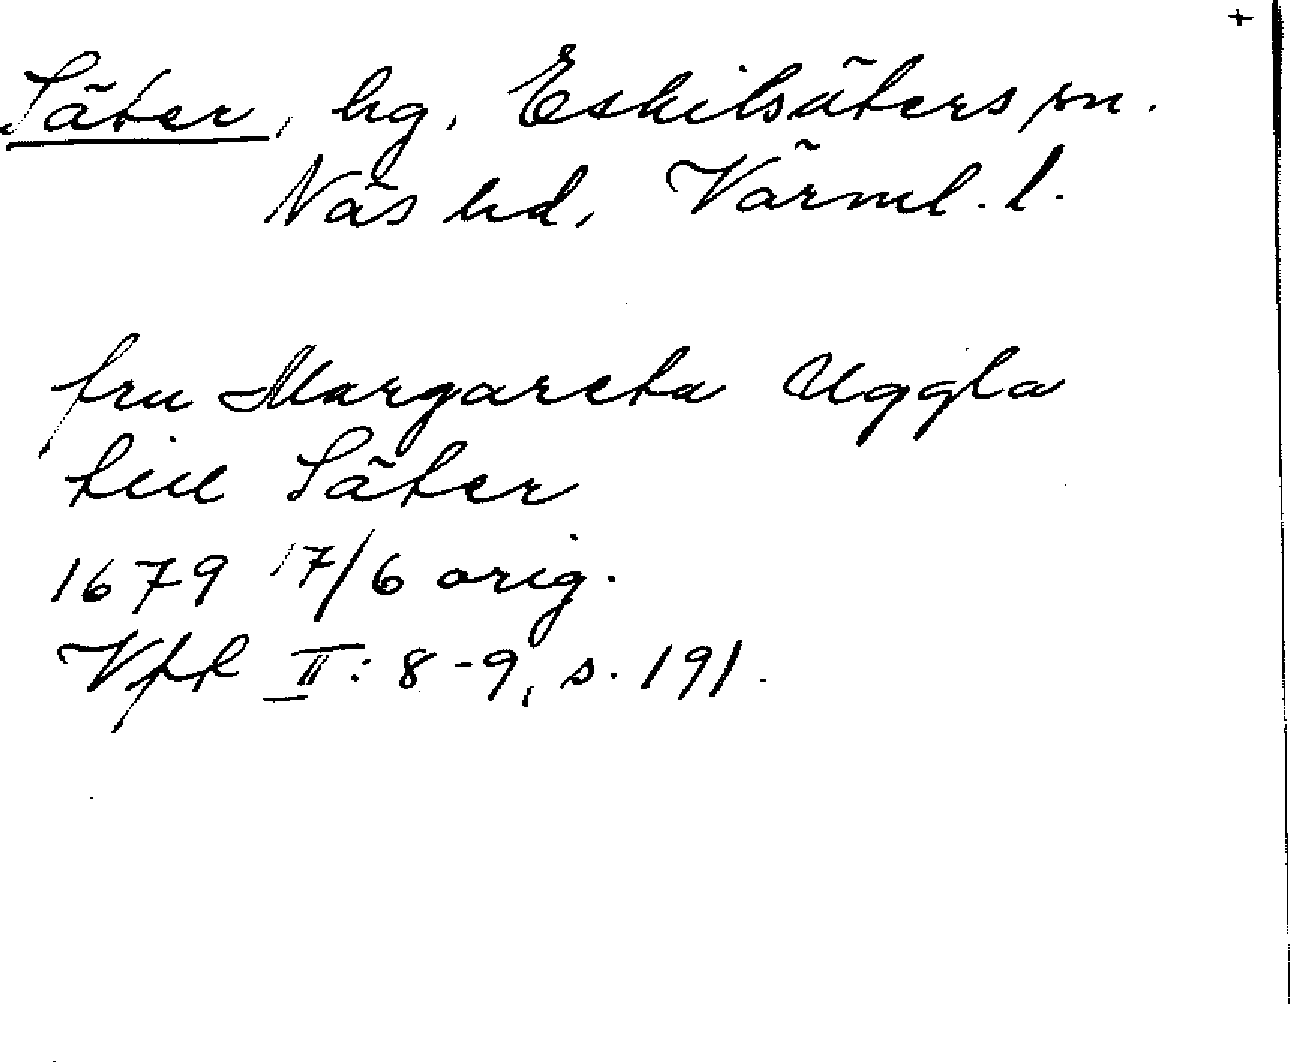 +
Säter, hg, Eskilsäters sn.
Näs hd, Värml. l.
fru Margareta Uggla
till Säter
1679 17/6 orig.
VFR II: 8-9, s. 191.